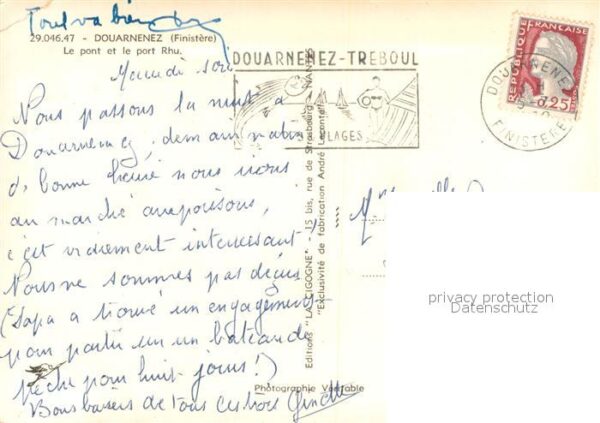 Tout va bien
29.046.47 - DOUARNENEZ (Finistère)
Le pont et le port Rhu.
Mardi soir
Nous passons la nuit à
Douarnenez, demain matin
de bonne heure nous irons
au marché aux poissons,
c'est vraiment intéressant
Nous ne sommes pas déçus
(Papa a trouvé un engagement
pour partir sur un bateau de
pêche pour huit jours !)
Bons baisers de tous les trois Ginette
DOUARNENEZ-TREBOUL
PLAGES
Editions "LA CIGOGNE" - 15 bis, rue de Strasbourg - NANTES
"Exclusivité de fabrication André Leconte"
Photographie Véritable
REPUBLIQUE FRANÇAISE
0,25
DOUARNENEZ
FINISTERE
privacy protection
Datenschutz